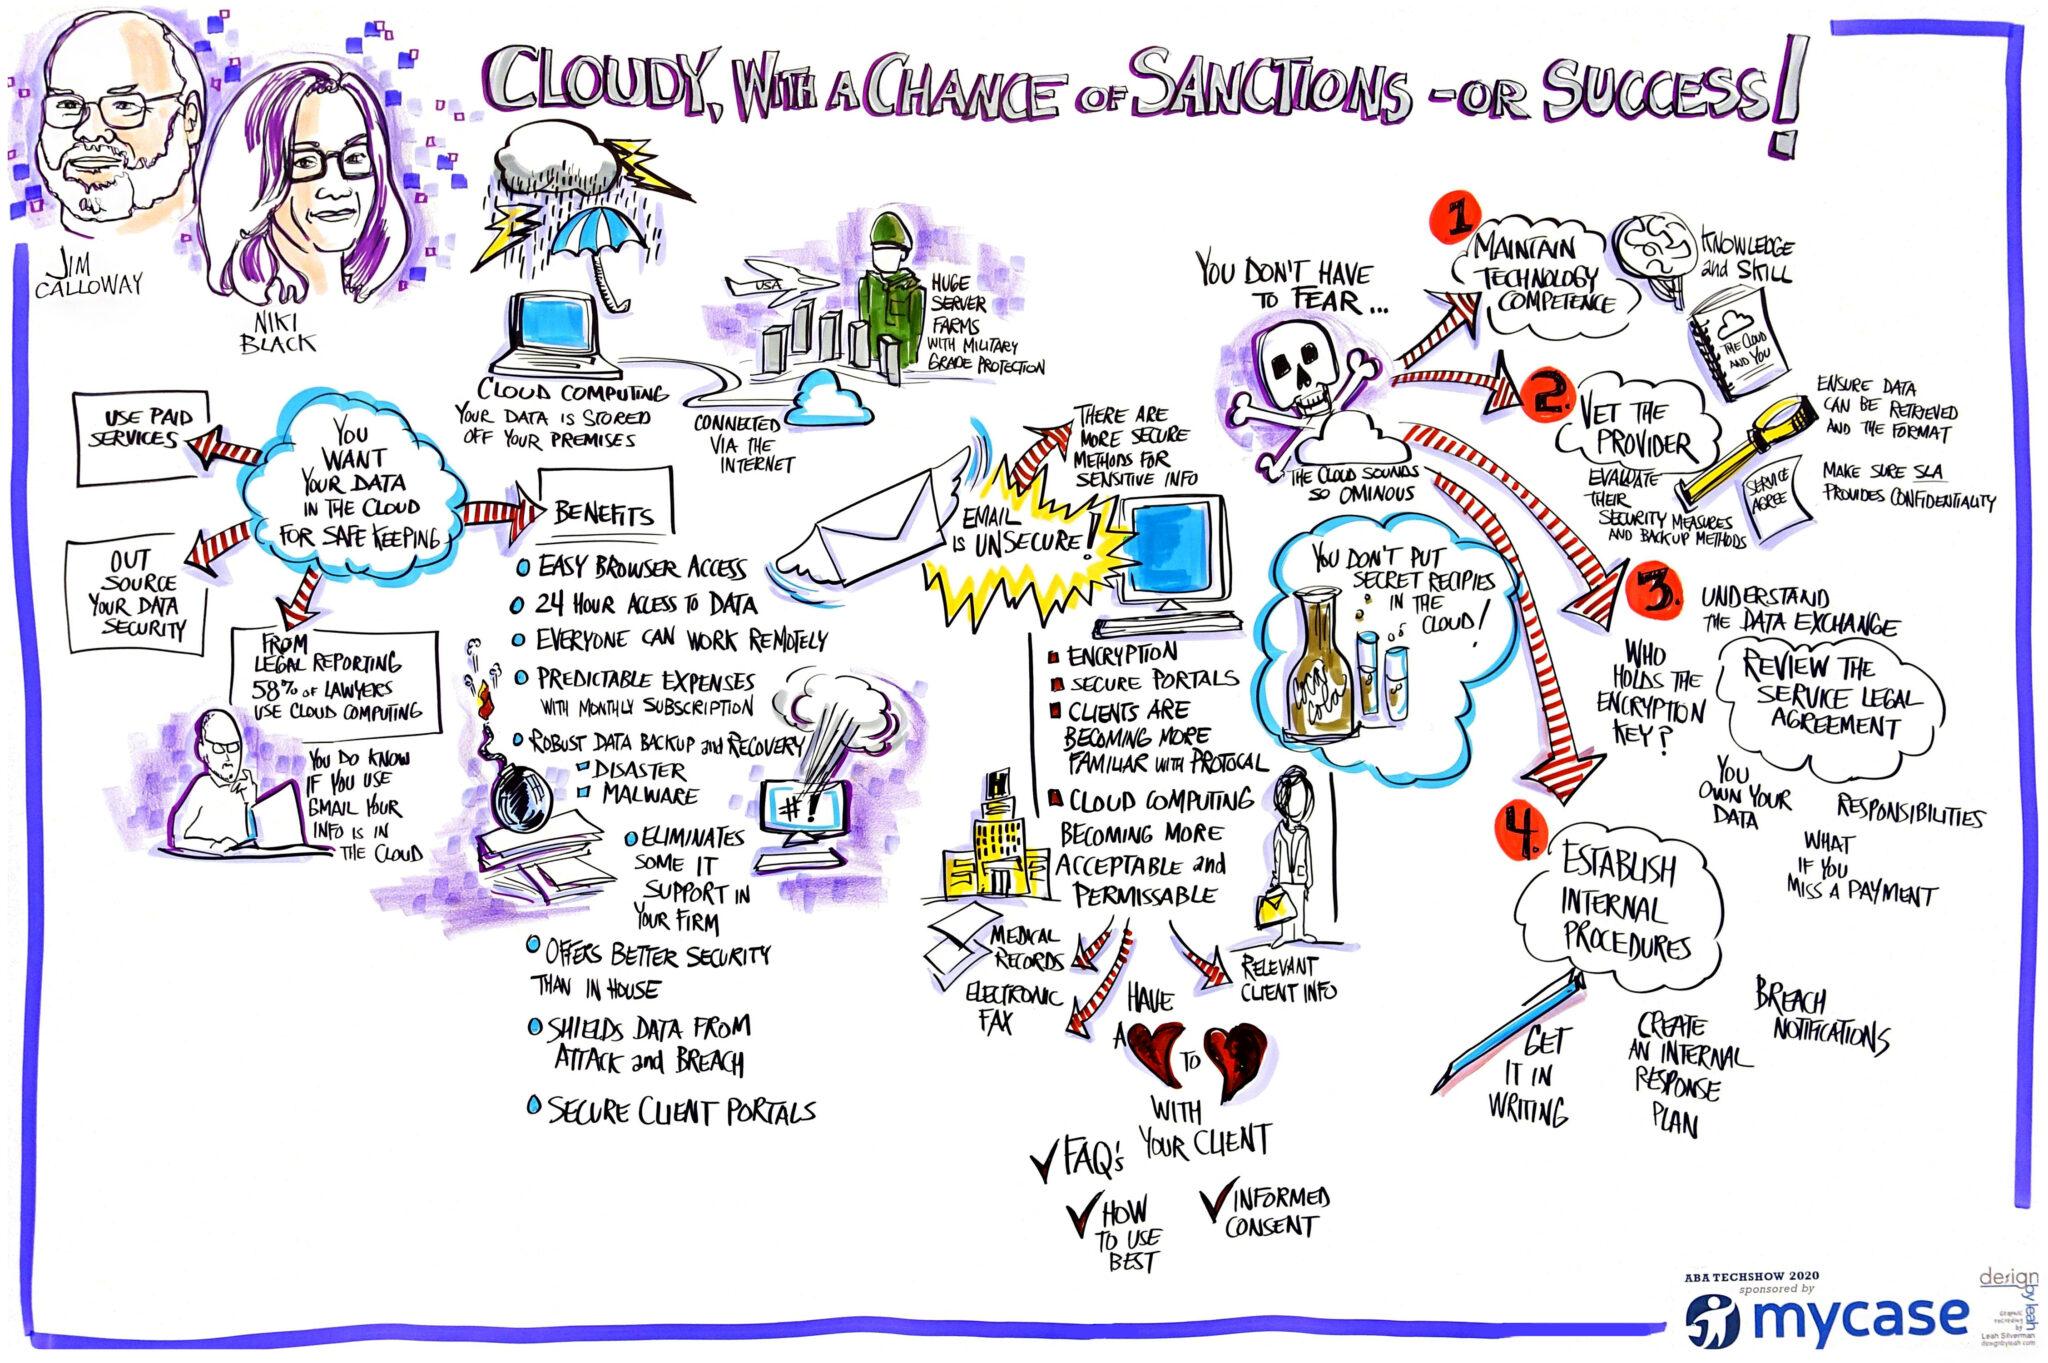 CLOUDY, WITH A CHANCE OF SANCTIONS - OR SUCCESS!
JIM
CALLOWAY
NIKI
BLACK
USE PAID
SERVICES
YOU
WANT
YOUR DATA
IN THE CLOUD
FOR SAFE KEEPING
OUT
SOURCE
YOUR DATA
SECURITY
FROM
LEGAL REPORTING
58% OF LAWYERS
USE CLOUD COMPUTING
YOU DO KNOW
IF YOU USE
GMAIL YOUR
INFO IS IN
THE CLOUD
CLOUD COMPUTING
YOUR DATA IS STORED
OFF YOUR PREMISES
USA
HUGE
SERVER
FARMS
WITH MILITARY
GRADE PROTECTION
CONNECTED
VIA THE
INTERNET
BENEFITS
EASY BROWSER ACCESS
24 HOUR ACCESS TO DATA
EVERYONE CAN WORK REMOTELY
PREDICTABLE EXPENSES
WITH MONTHLY SUBSCRIPTION
ROBUST DATA BACKUP and RECOVERY
DISASTER
MALWARE
#!
ELIMINATES
SOME IT
SUPPORT IN
YOUR FIRM
OFFERS BETTER SECURITY
THAN IN HOUSE
SHIELDS DATA FROM
ATTACK and BREACH
SECURE CLIENT PORTALS
THERE ARE
MORE SECURE
METHODS FOR
SENSITIVE INFO
EMAIL
IS UNSECURE!
ENCRYPTION
SECURE PORTALS
CLIENTS ARE
BECOMING MORE
FAMILIAR WITH PROTOCAL
CLOUD COMPUTING
BECOMING MORE
ACCEPTABLE and
PERMISSABLE
H
MEDICAL
RECORDS
ELECTRONIC
FAX
RELEVANT
CLIENT INFO
HAVE
A
TO
WITH
YOUR CLIENT
FAQ's
HOW
TO USE
BEST
INFORMED
CONSENT
YOU DON'T HAVE
TO FEAR...
THE CLOUD SOUNDS
SO OMINOUS
YOU DON'T PUT
SECRET RECIPIES
IN THE
CLOUD!
Coca
Cola
1
MAINTAIN
TECHNOLOGY
COMPETENCE
KNOWLEDGE
and SKILL
THE CLOUD
AND YOU
2.
VET THE
PROVIDER
EVALUATE
THEIR
SECURITY MEASURES
AND BACKUP METHODS
ENSURE DATA
CAN BE RETRIEVED
AND THE FORMAT
SERVICE
AGREE
MAKE SURE SLA
PROVIDES CONFIDENTIALITY
3.
UNDERSTAND
THE DATA EXCHANGE
WHO
HOLDS THE
ENCRYPTION
KEY?
REVIEW THE
SERVICE LEGAL
AGREEMENT
YOU
OWN YOUR
DATA
RESPONSIBILITIES
WHAT
IF YOU
MISS A PAYMENT
4.
ESTABLISH
INTERNAL
PROCEDURES
GET
IT IN
WRITING
CREATE
AN INTERNAL
RESPONSE
PLAN
BREACH
NOTIFICATIONS
ABA TECHSHOW 2020
sponsored by
mycase
design
by leah
GRAPHIC
RECORDING
by
Leah Silverman
designbyleah.com